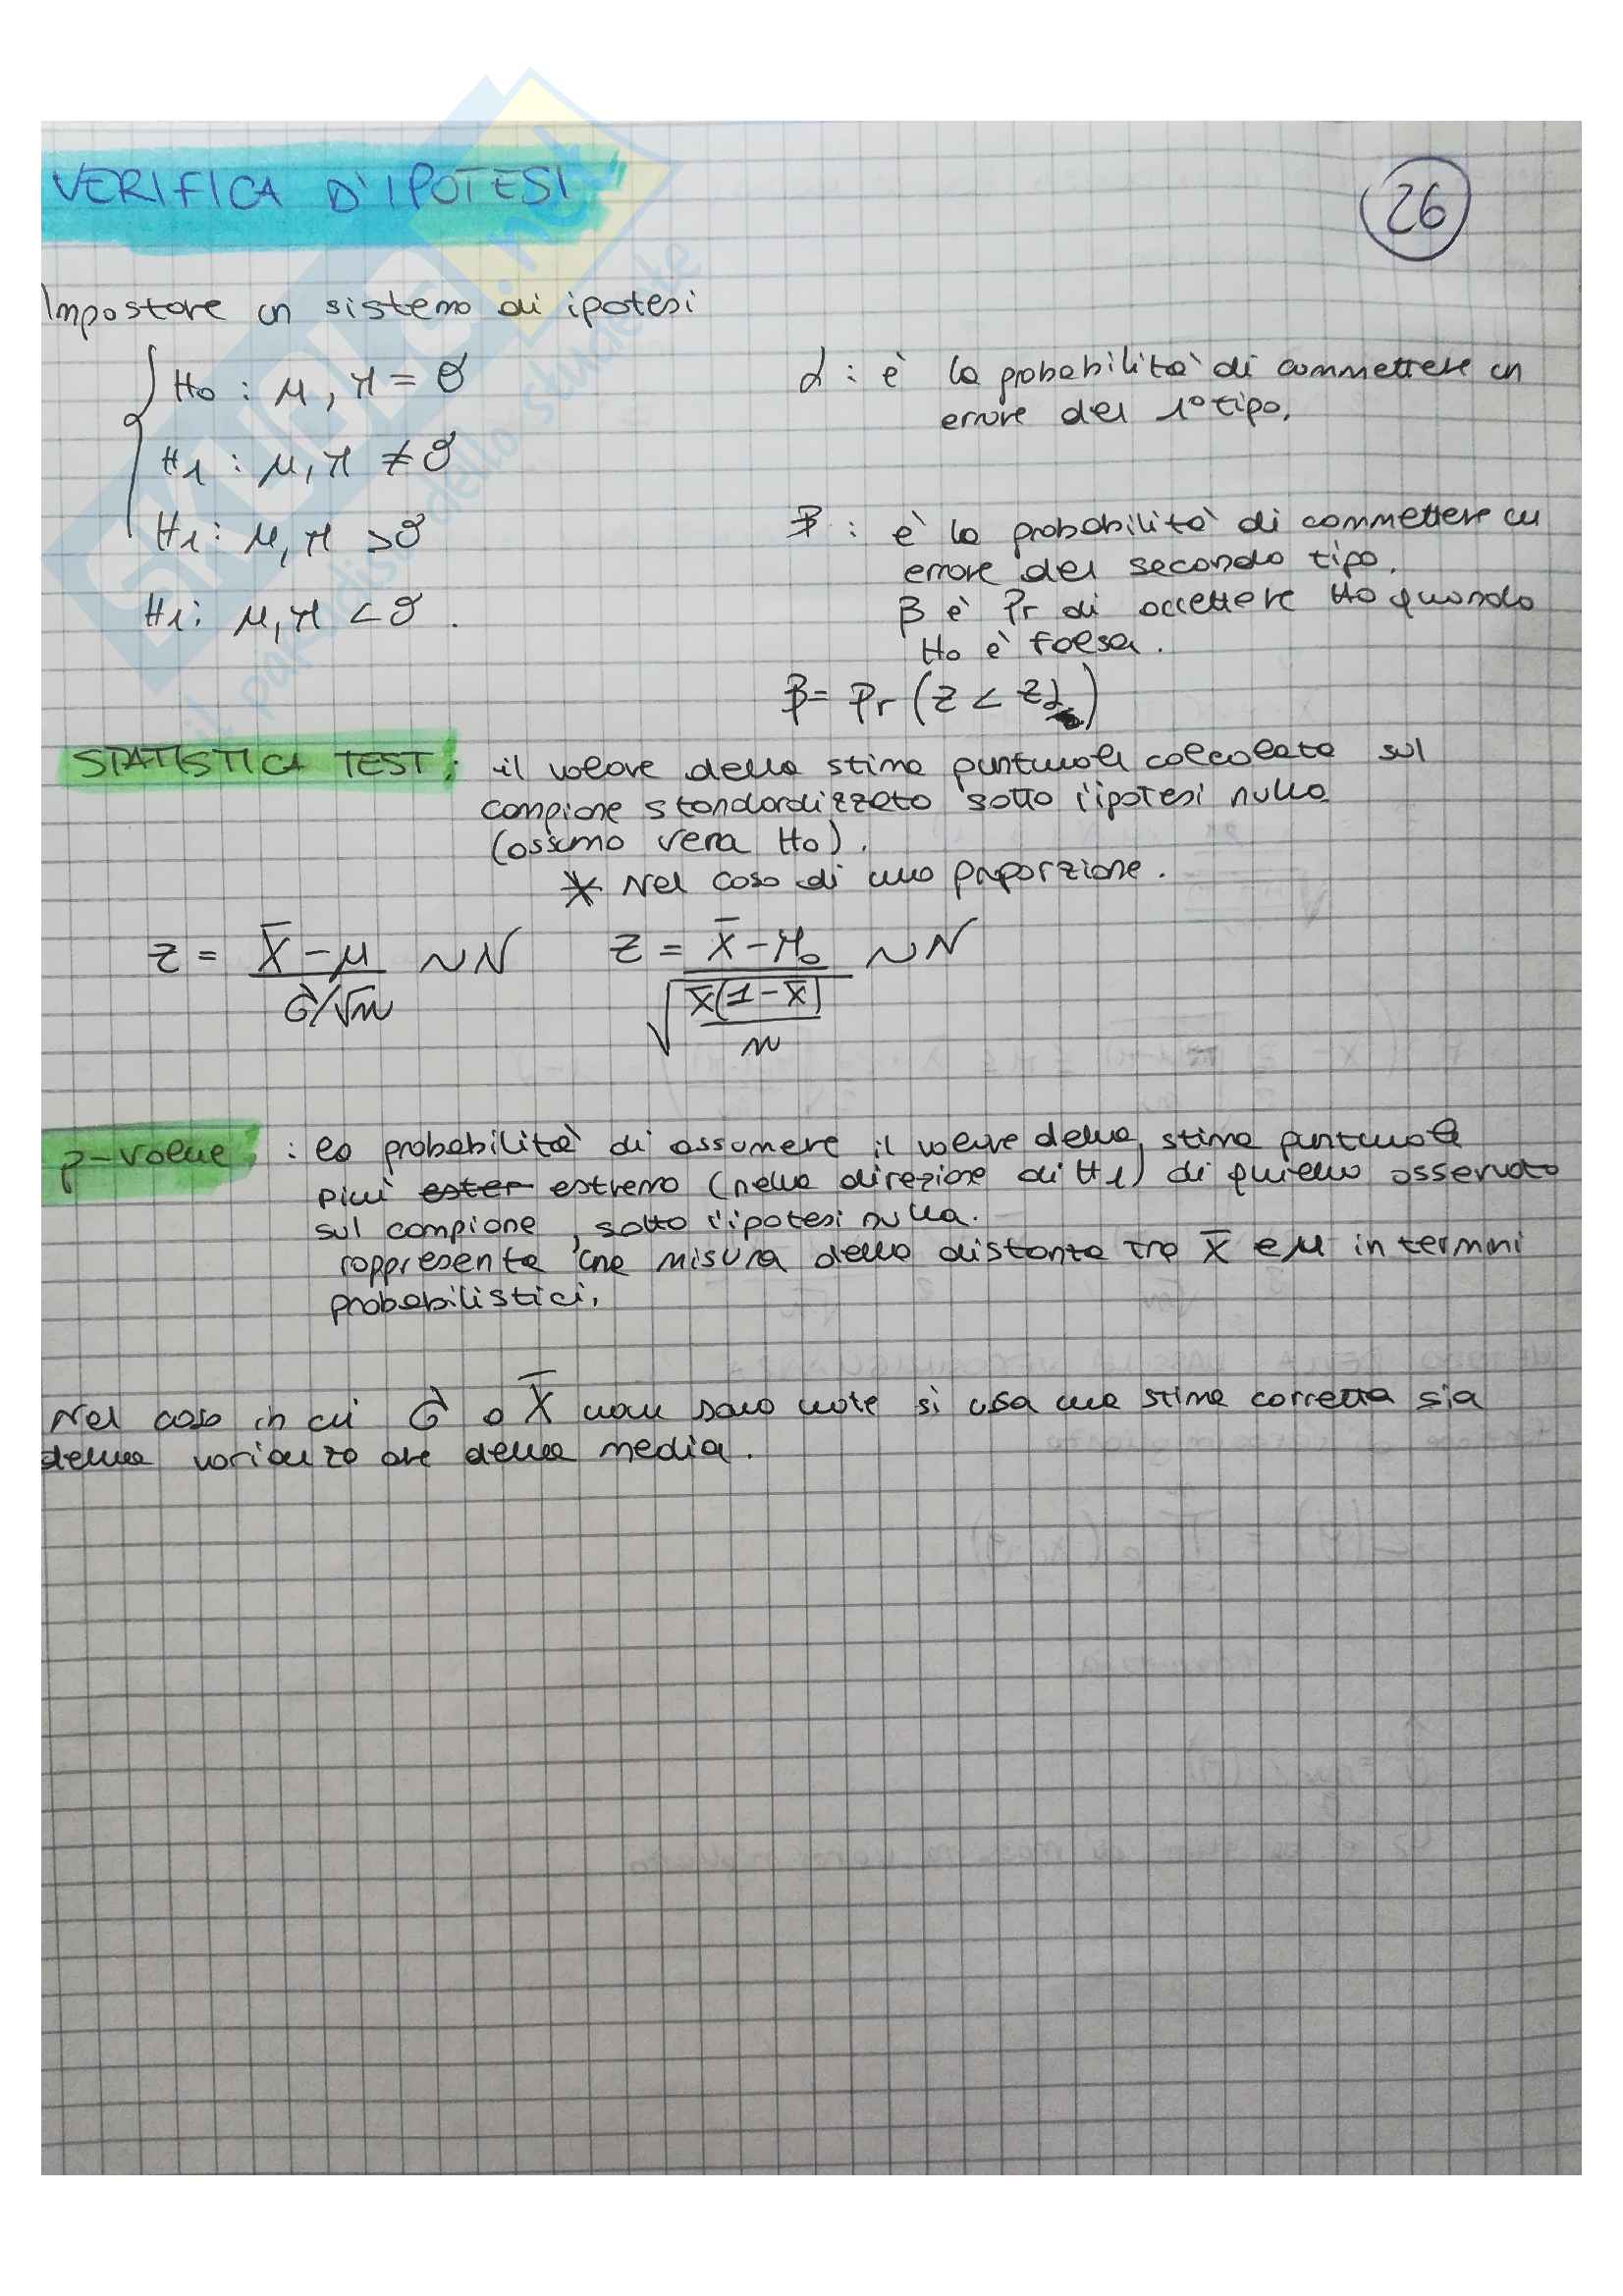 VERIFICA D'IPOTESI
26
Impostare un sistema di ipotesi
H0 : μ, π = θ
H1 : μ, π ≠ θ
H1 : μ, π > θ
H1 : μ, π < θ.
α : è la probabilità di commettere un
errore del 1° tipo.
β : è la probabilità di commettere un
errore del secondo tipo.
β è Pr di accettare H0 quando
H0 è falsa.
β = Pr (z < zα)
STATISTICA TEST: il valore della stima puntuale calcolata sul
campione standardizzato sotto l'ipotesi nulla
(ossimo vera H0).
* Nel caso di una proporzione.
z = (X̄ - μ) / (σ/√n) ~ N    z = (X̄ - π0) / √(X̄(1 - X̄)/n) ~ N
p-value : la probabilità di assumere il valore della stima puntuale
più ester estremo (nella direzione di H1) di quello osservato
sul campione, sotto l'ipotesi nulla.
rappresenta una misura della distanza tra X̄ e μ in termini
probabilistici.
Nel caso in cui σ o X̄ non sono note si usa una stima corretta sia
della varianza che della media.
SKUOLA.net
il paradiso dello studente